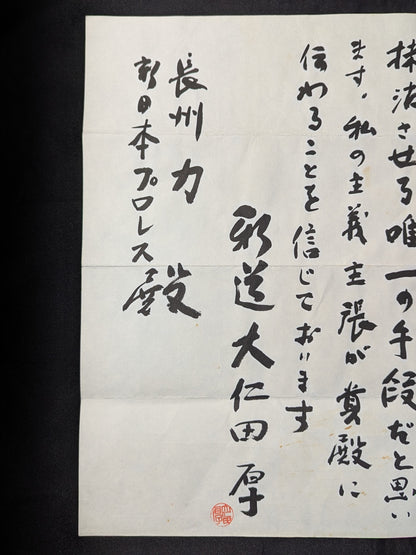 抹消させる唯一の手段だと思い
ます。私の主義主張が貴殿に
伝わることを信じております
邪道 大仁田 厚
長州 力
新日本プロレス
殿